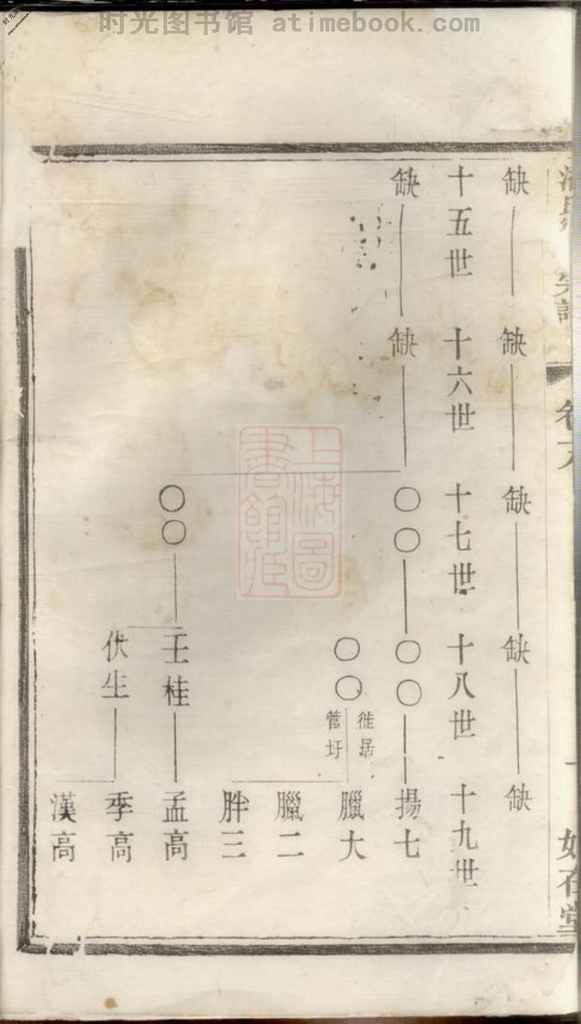 时光图书馆 atimebook.com
卷六
如在堂
缺
缺
缺
缺
缺
十五世
十六世
十七世
十八世
十九世
缺
缺
〇〇
〇〇
揚七
〇〇
徙居
管圩
臘大
臘二
胖三
〇〇
壬桂
孟高
伏生
季高
漢高
上海圖
書館藏